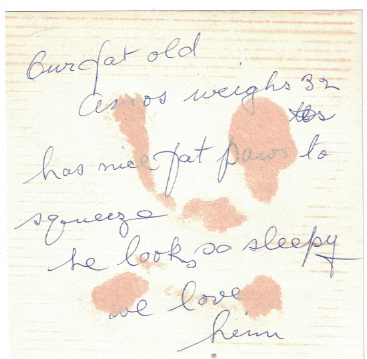 Our fat old
Amos weighs 32
lbs
has nice fat paws to
squeeze
he looks so sleepy
we love
him